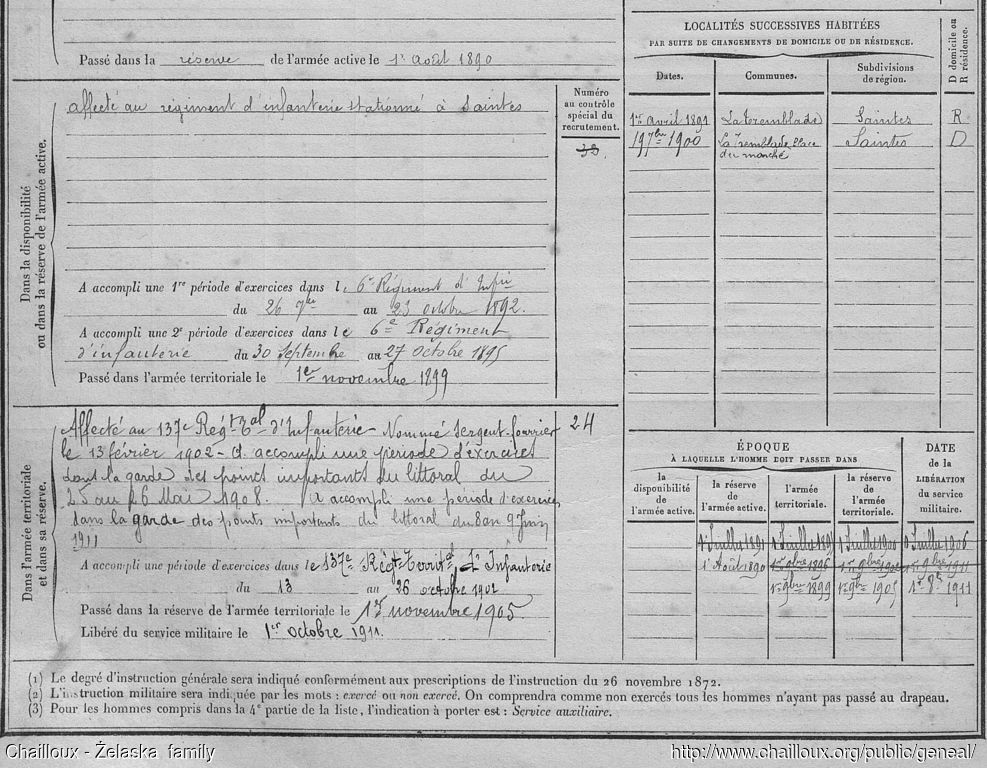 Passé dans la réserve de l'armée active le 1er août 1890
Dans la disponibilité
ou dans la réserve de l'armée active.
affecté au régiment d'infanterie stationné à Saintes
Numéro
au contrôle
spécial du
recrutement.
A accompli une 1re période d'exercices dans le 6e Régiment d'Infie
du 26 7bre au 23 octobre 1892.
A accompli une 2e période d'exercices dans le 6e Régiment
d'infanterie du 30 Septembre au 27 octobre 1895
Passé dans l'armée territoriale le 1er novembre 1899
Dans l'armée territoriale
et dans sa réserve.
Affecté au 137e Régt Tal d'Infanterie - Nommé Sergent-fourrier
24
le 13 février 1902 - A accompli une période d'exercices
dans la garde des points importants du littoral du
25 au 26 Mai 1908. A accompli une période d'exercices
dans la garde des points importants du littoral du 8 au 9 Juin
1911
A accompli une période d'exercices dans le 137e Régt Territal d'Infanterie
du 13 au 26 octobre 1902
Passé dans la réserve de l'armée territoriale le 1er novembre 1905.
Libéré du service militaire le 1er octobre 1911.
LOCALITÉS SUCCESSIVES HABITÉES
PAR SUITE DE CHANGEMENTS DE DOMICILE OU DE RÉSIDENCE.
D domicile ou
R résidence.
Dates. Communes. Subdivisions
de région.
1er avril 1891 La Tremblade Saintes R
19 7bre 1900 La Tremblade place Saintes D
du marché
ÉPOQUE
À LAQUELLE L'HOMME DOIT PASSER DANS
DATE
de la
LIBÉRATION
du service
militaire.
la
disponibilité
de
l'armée active.
la réserve
de
l'armée active.
l'armée
territoriale.
la réserve
de
l'armée
territoriale.
1 Juillet 1891 1 Juillet 1900 Juillet 1906
1er Août 1890 1er 9bre 1896 1er 9bre 1911
1er 9bre 1899 1er 9bre 1905 1er 8bre 1911
(1) Le degré d'instruction générale sera indiqué conformément aux prescriptions de l'instruction du 26 novembre 1872.
(2) L'instruction militaire sera indiquée par les mots : exercé ou non exercé. On comprendra comme non exercés tous les hommes n'ayant pas passé au drapeau.
(3) Pour les hommes compris dans la 4e partie de la liste, l'indication à porter est : Service auxiliaire.
Chailloux - Żelaska family
http://www.chailloux.org/public/geneal/